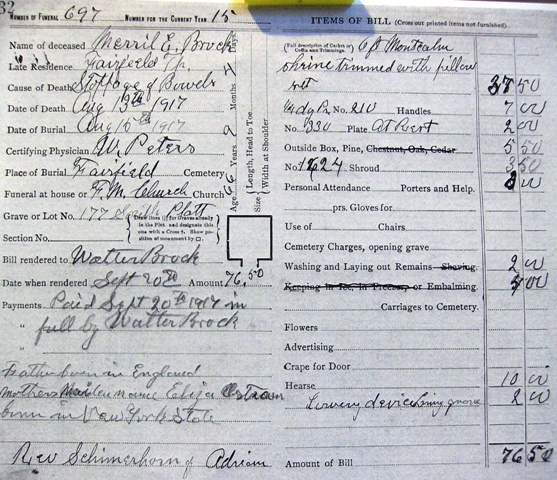 32
NUMBER OF FUNERAL 697 NUMBER FOR THE CURRENT YEAR 15
Name of deceased Merril E. Brock
Late Residence Fairfield Tp.
Cause of Death Stoppage of Bowels
Date of Death Aug 13th 1917
Date of Burial Aug 15th 1917
Certifying Physician W. Peters
Place of Burial Fairfield Cemetery
Funeral at house or F. M. Church Church
Grave or Lot No. 177 Platt
(Draw lines for Graves already in the Plot and designate this one with a Cross. Show position of monument by □.)
Section No.
Age 66 Years 2 Months 4 Days
Size { Length, Head to Toe
Width at Shoulder
Bill rendered to Walter Brock
Date when rendered Sept 20th Amount 76,50
Payments Paid Sept 20th 1917 in
" full by Walter Brock
"
Father born in England
Mothers Maiden name Eliza Ostrom
born in New York State
Rev Schimerhorn of Adrian
ITEMS OF BILL (Cross out printed items not furnished).
(Full description of Casket or Coffin and Trimmings. Montcalm
shrine trimmed with pillow
set 37 50
No. 210 Handles 7 00
No. 330 Plate At Rest 2 00
Outside Box, Pine, Chestnut, Oak, Cedar 5 50
No. 1624 Shroud 3 50
Personal Attendance Porters and Help. 3 00
prs. Gloves for
Use of Chairs
Cemetery Charges, opening grave
Washing and Laying out Remains Shaving 2 00
Keeping in Ice, in Preserv. or Embalming. 4 00
Carriages to Cemetery.
Flowers
Advertising
Crape for Door
Hearse 10 00
Lowering device lining grave 2 00
Amount of Bill 76 50